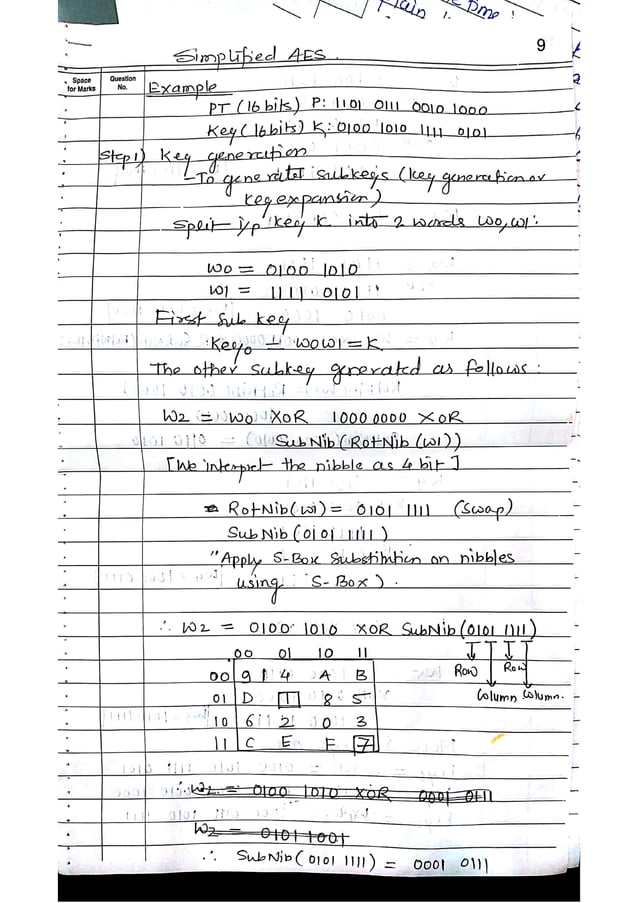 Plain
9
Simplified AES.
Space for Marks
Question No.
Example
PT (16 bits) P: 1101 0111 0010 1000
Key (16 bits) K: 0100 1010 1111 0101
Step 1) Key generation
- To generate subkeys (key generation or
key expansion)
Split i/p key K into 2 words W0, W1:
W0 = 0100 1010
W1 = 1111 0101
First Sub key
Key0 = W0W1 = K
The other subkey generated as follows:
W2 = W0 XOR 1000 0000 XOR
SubNib (RotNib (W1))
[We interpret the nibble as 4 bit]
RotNib(W1) = 0101 1111 (Swap)
SubNib (0101 1111)
"Apply S-Box Substitution on nibbles
using S-Box).
∴ W2 = 0100 1010 XOR SubNib (0101 1111)
00 01 10 11
00 9 4 A B Row Row
01 D 1 8 5 Column Column.
10 6 2 0 3
11 C E F 7
∴ W2 = 0100 1010 XOR 0001 0111
W2 = 0101 1001
∴ SubNib (0101 1111) = 0001 0111